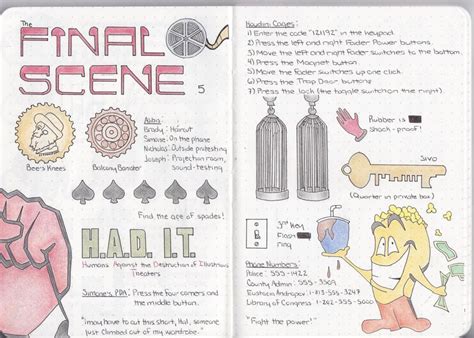 The
FINAL
SCENE
5
Alibis:
Brady: Haircut
Simone: On the phone
Nicholas: Outside protesting
Joseph: Projection room,
sound-testing
Bee's Knees
Balcony Bander
Find the ace of spades!
H.A.D. I.T.
Humans Against the Destruction of Illustrious
Theaters
Simone's PDA: Press the four corners and
the middle button.
"I may have to cut this short, Hal, someone
just climbed out of my wardrobe."
Houdini Cages:
1) Enter the code "121192" in the keypad.
2) Press the left and right Fader Power buttons.
3) Move the left and right Fader switches down.
4) Press the Magnet button
5) Move the Fader switches up one click.
6) Press the Trap Door buttons
7) Press Lock (the toggle switch on the right).
Rubber is
shock-proof!
(Quarter in private box)
3rd key
Flash
ring
Phone Numbers:
Police: 555-1422
County Admin: 555-3909
Eustacia Andropov: 1-813-555-3247
Library of Congress: 1-202-555-5000
"Fight the power!"